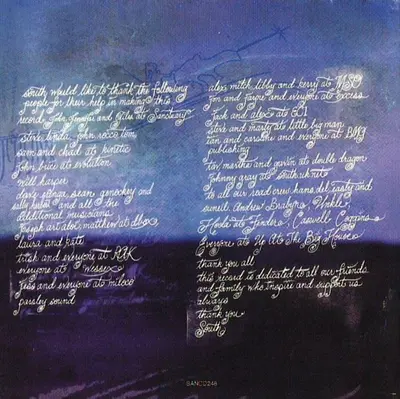 south would like to thank the following
people for their help in making this
record. John, and Giles at Sanctuary
steve, linda, john, rocco, tom
sam and chad at kinetic
john brice at evolution
will harper
dave, sean genockey and
sally and all the
additional musicians
joseph art dbox, matthew at dbox
laura and kate
trish and everyone at RAK
everyone at wessex
jess and everyone at miloco
parsley sound
alex, mitch, libby and kerry at MSO
jon and and everyone at excess
Jack and alex at CJ
steve and marty at little big man
ian and caroline and everyone at BMG
publishing
tov, marthe and gavin at double dragon
Johnny gray at
to all our road crew, hana, del, scatty and
sunil. Andrew
at Fender,
Everyone at Up At The Big House
thank you all
this record is dedicated to all our friends
and family who inspire and support us
always
thank you
South
SANCD246